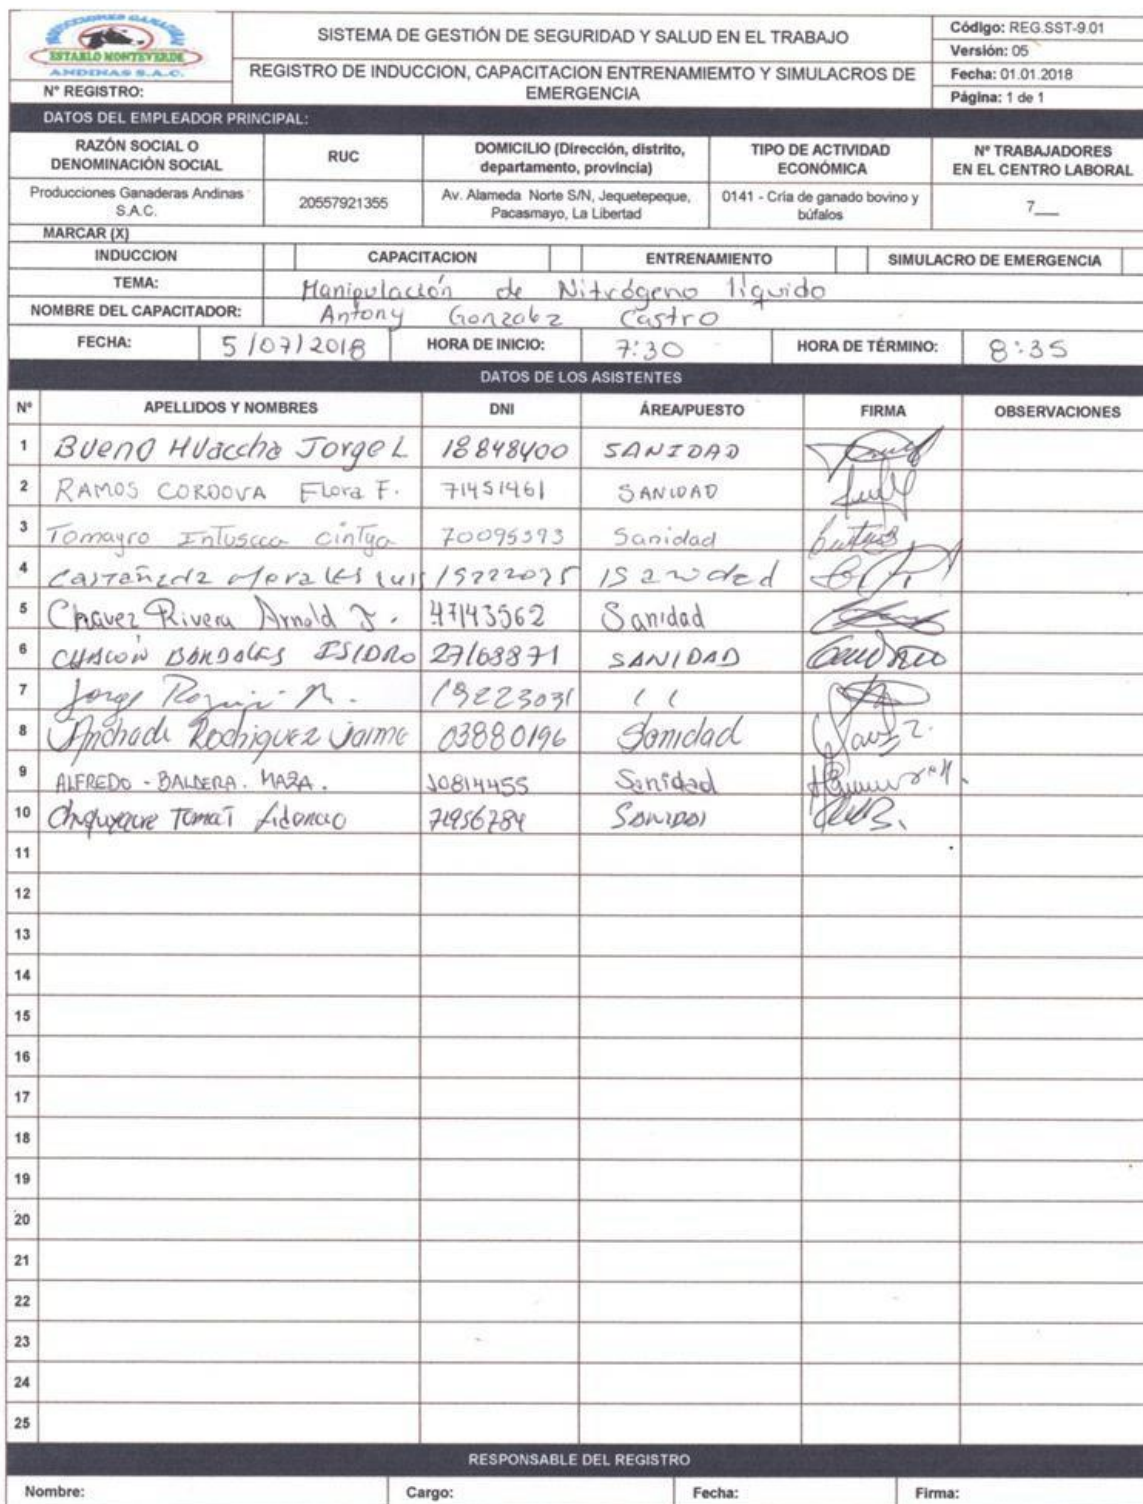 PRODUCCIONES GANADERAS
ESTABLO MONTEVERDE
ANDINAS S.A.C.
N° REGISTRO:
SISTEMA DE GESTIÓN DE SEGURIDAD Y SALUD EN EL TRABAJO
REGISTRO DE INDUCCION, CAPACITACION ENTRENAMIEMTO Y SIMULACROS DE
EMERGENCIA
Código: REG.SST-9.01
Versión: 05
Fecha: 01.01.2018
Página: 1 de 1
DATOS DEL EMPLEADOR PRINCIPAL:
RAZÓN SOCIAL O DENOMINACIÓN SOCIAL RUC DOMICILIO (Dirección, distrito, departamento, provincia) TIPO DE ACTIVIDAD ECONÓMICA Nº TRABAJADORES EN EL CENTRO LABORAL
Producciones Ganaderas Andinas S.A.C. 20557921355 Av. Alameda Norte S/N, Jequetepeque, Pacasmayo, La Libertad 0141 - Cría de ganado bovino y búfalos 7___
MARCAR (X)
INDUCCION CAPACITACION ENTRENAMIENTO SIMULACRO DE EMERGENCIA
TEMA: Manipulación de Nitrógeno líquido
NOMBRE DEL CAPACITADOR: Antony Gonzalez Castro
FECHA: 5/07/2018 HORA DE INICIO: 7:30 HORA DE TÉRMINO: 8:35
DATOS DE LOS ASISTENTES
Nº APELLIDOS Y NOMBRES DNI ÁREA/PUESTO FIRMA OBSERVACIONES
1 Bueno Huaccha Jorge L 18848400 SANIDAD
2 RAMOS CORDOVA Flora F. 71451461 SANIDAD
3 Tomayro Intuscca Cintya 70095393 Sanidad
4 Castañeda Morales Luis
5 Chavez Rivera Arnold J. 47143562 Sanidad
6 CHACON BARDALES ISIDRO 27168871 SANIDAD
7 Jorge 19223031 ( (
8 Andrade Rodriguez Jaime 03880196 Sanidad
9 ALFREDO - BALDERA. MAZA. 10814455 Sanidad
10 71956784 Sanidad
11
12
13
14
15
16
17
18
19
20
21
22
23
24
25
RESPONSABLE DEL REGISTRO
Nombre: Cargo: Fecha: Firma: